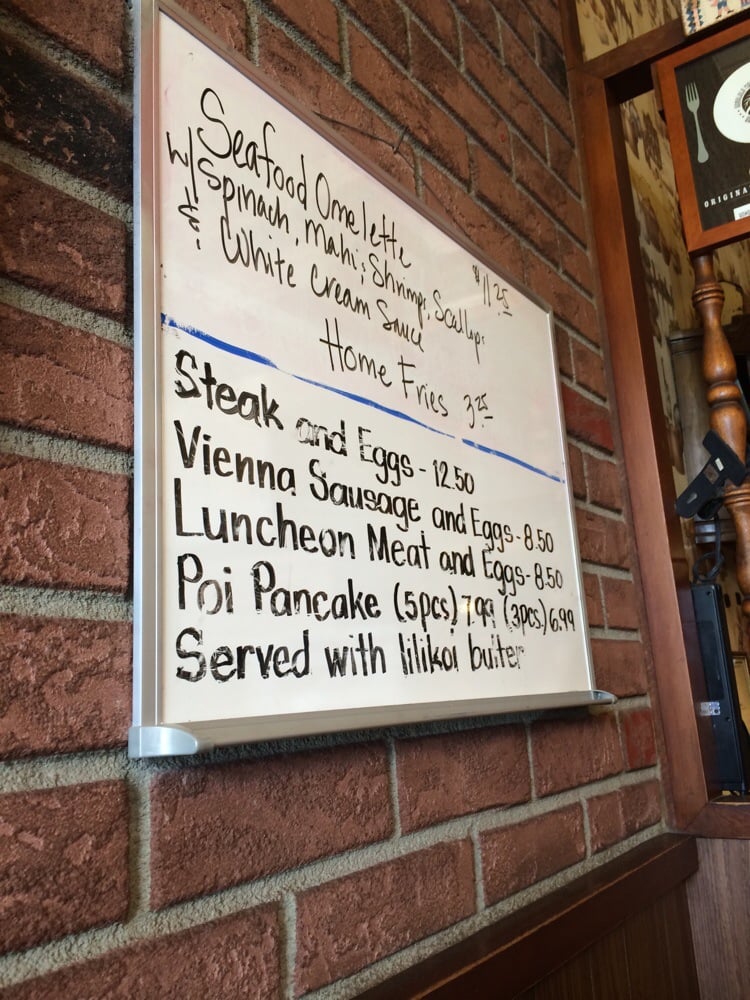 Seafood Omelette
w/ Spinach, Mahi, Shrimp, Scallops $11.25
& White Cream Sauce
Home Fries 3.25
Steak and Eggs - 12.50
Vienna Sausage and Eggs - 8.50
Luncheon Meat and Eggs - 8.50
Poi Pancake (5pcs) 7.99 (3pcs.) 6.99
Served with lilikoi butter
ORIGINA